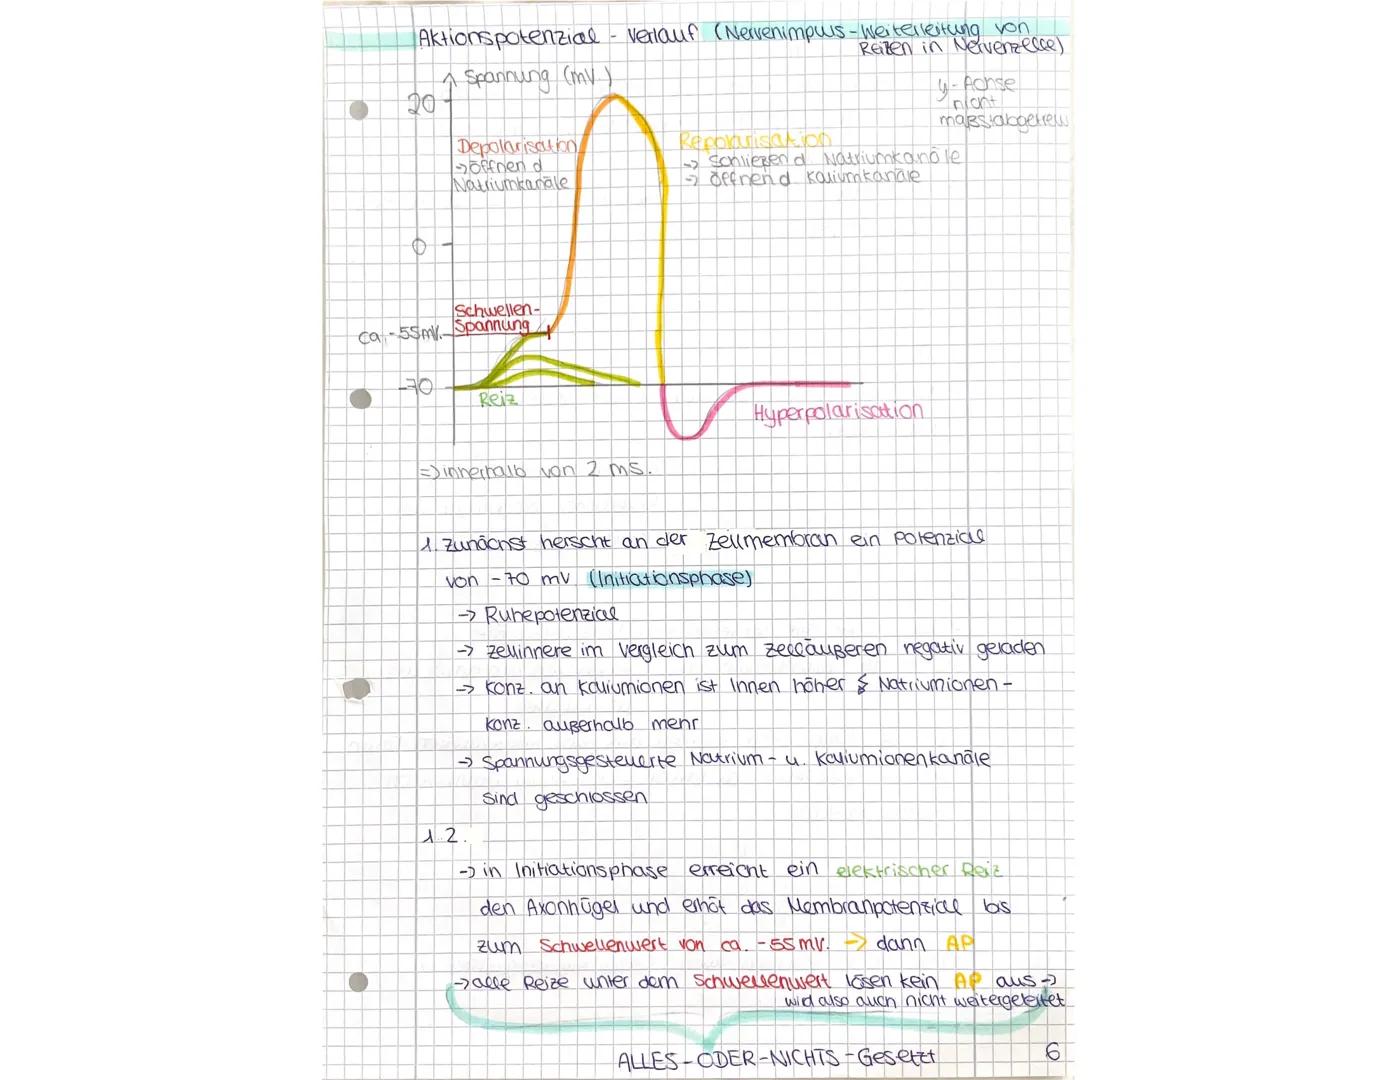 Aktionspotenzial - Verlauf (Nervenimpuls-Weiterleitung von
Reizen in Nervenzelle)
Spannung (mV)
y-Achse
nicht
maßstabgetreu
20
Depolarisation
→öffnen d
Natriumkanäle
Repolarisation
→ schließen d Natriumkanäle
→ öffnen d Kaliumkanäle
0
Schwellen-
spannung
ca. -55mV.
-70
Reiz
Hyperpolarisation
=> innerhalb von 2 ms.
1. Zunächst herscht an der Zellmembran ein Potenzial
von -70 mV (Initiationsphase)
→ Ruhepotenzial
→ Zellinnere im Vergleich zum Zelläußeren negativ geladen
→ Konz. an Kaliumionen ist Innen höher & Natriumionen-
konz. außerhalb mehr
→ Spannungsgesteuerte Natrium- u. Kaliumionenkanäle
sind geschlossen
1.2.
→ in Initiationsphase erreicht ein elektrischer Reiz
den Axonhügel und erhöt das Membranpotenzial bis
zum Schwellenwert von ca. -55 mV. → dann AP
→ alle Reize unter dem Schwellenwert lösen kein AP aus →
wid also auch nicht weitergeleitet
ALLES-ODER-NICHTS-Gesetzt
6